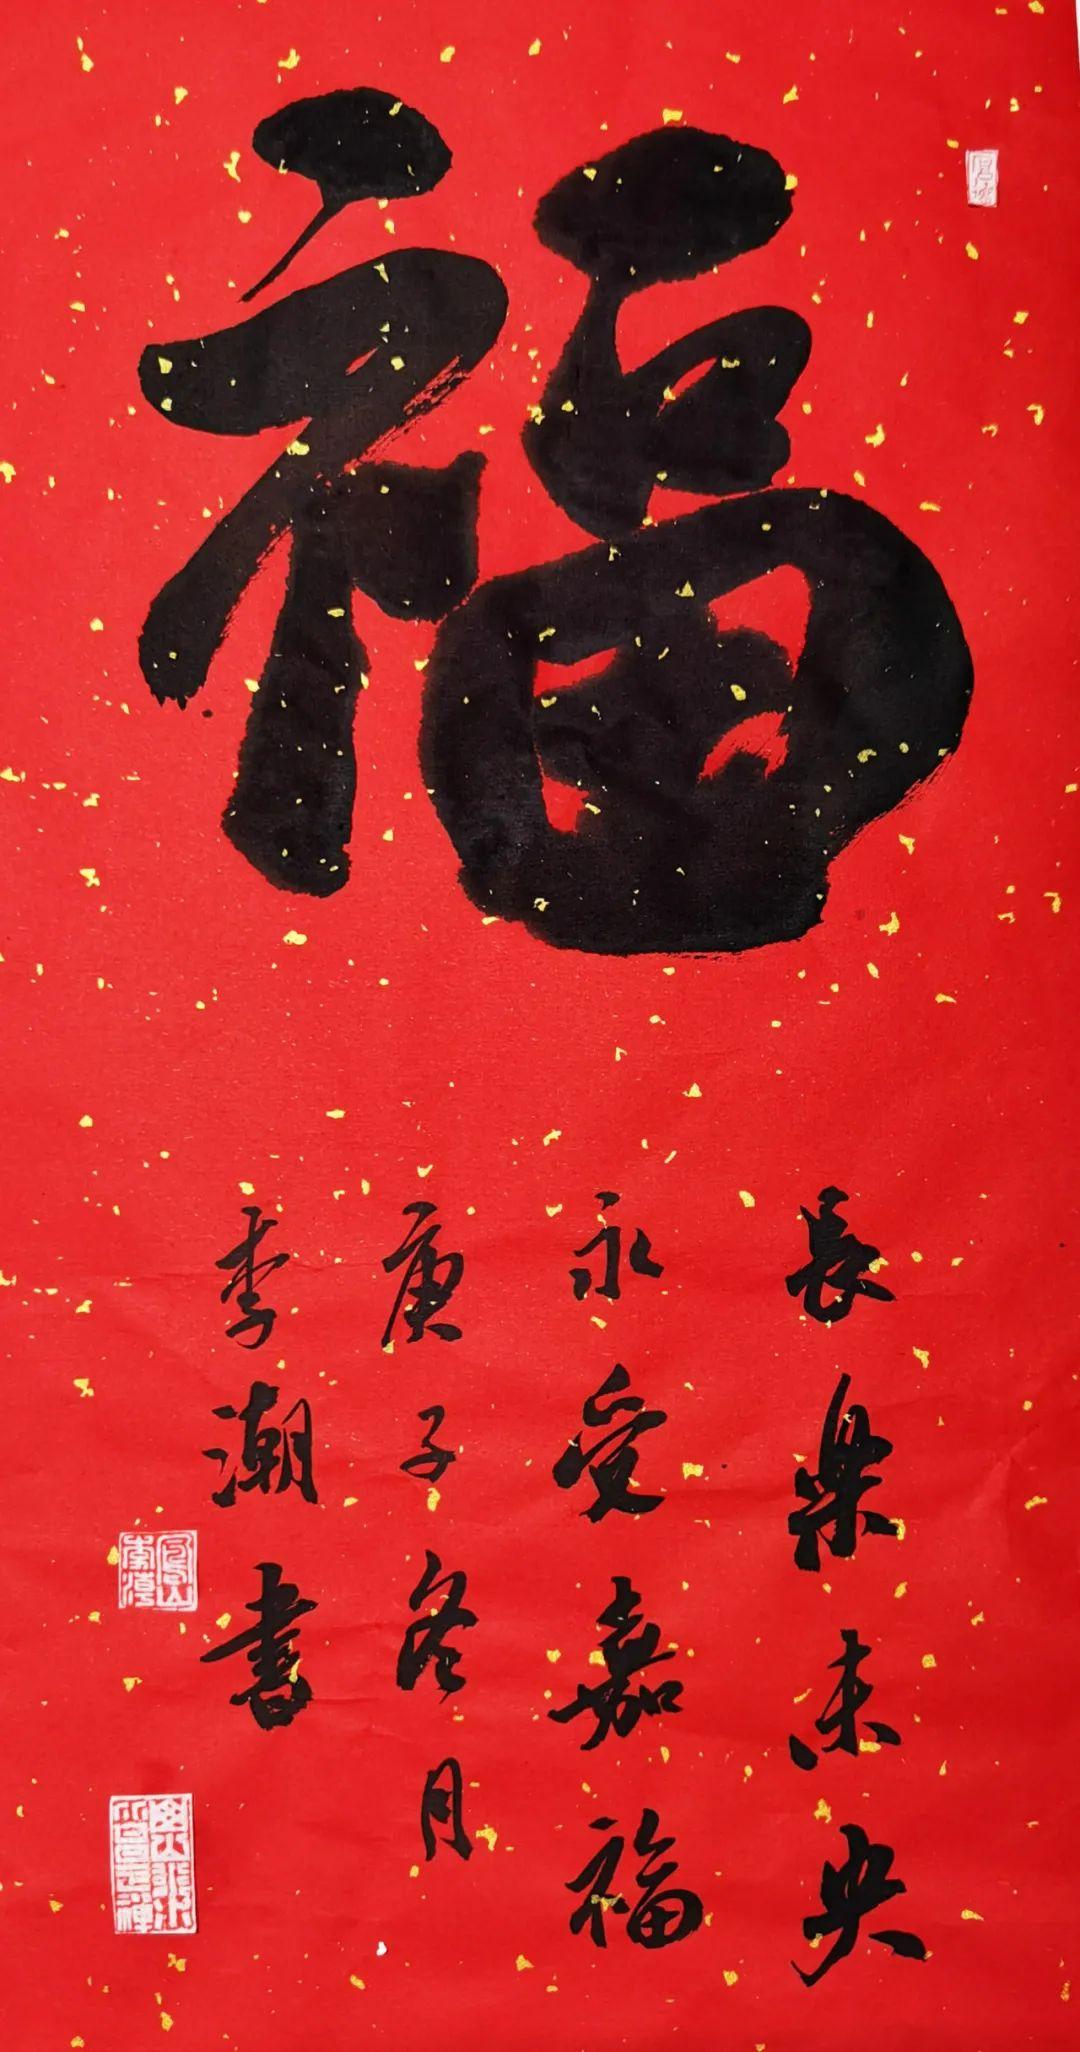 福
長樂未央
永受嘉福
庚子冬月
李潮書